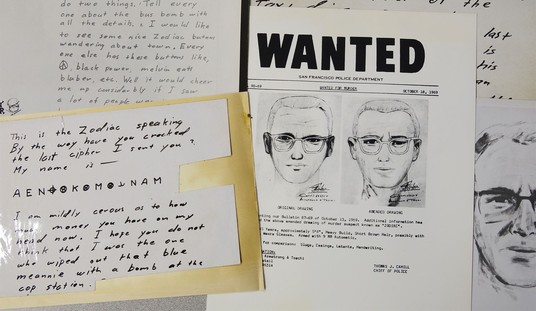 do two things. Tell every
one about the bus bomb with
all the details. & I would like
to see some nice Zodiac butons
wandering about town. Every
one else has these butons like,
black power, melvin eats
bluber, etc. Well it would cheer
me up considerbly if I saw
a lot of people
This is the Zodiac speaking
By the way have you cracked
the last cipher I sent you?
My name is —
A E N ⊕ K O M N A M
I am mildly cerous as to how
much money you have on my
head now. I hope you do not
think that I was the one
who wiped out that blue
meannie with a bomb at the
cop station.
WANTED
SAN FRANCISCO POLICE DEPARTMENT
WANTED FOR MURDER
OCTOBER 18, 1969
ORIGINAL DRAWING
AMENDED DRAWING
of October 13, 1969. Additional information has
the above amended drawing of murder suspect known as "ZODIAC".
years, approximately Heavy Build, Short Brown Hair, possibly with
Armed with 9 MM Automatic.
for comparison: Slugs, Casings, Latents, Handwriting.
Armstrong & Toschi
THOMAS J. CAHILL
CHIEF OF POLICE
last
is
this